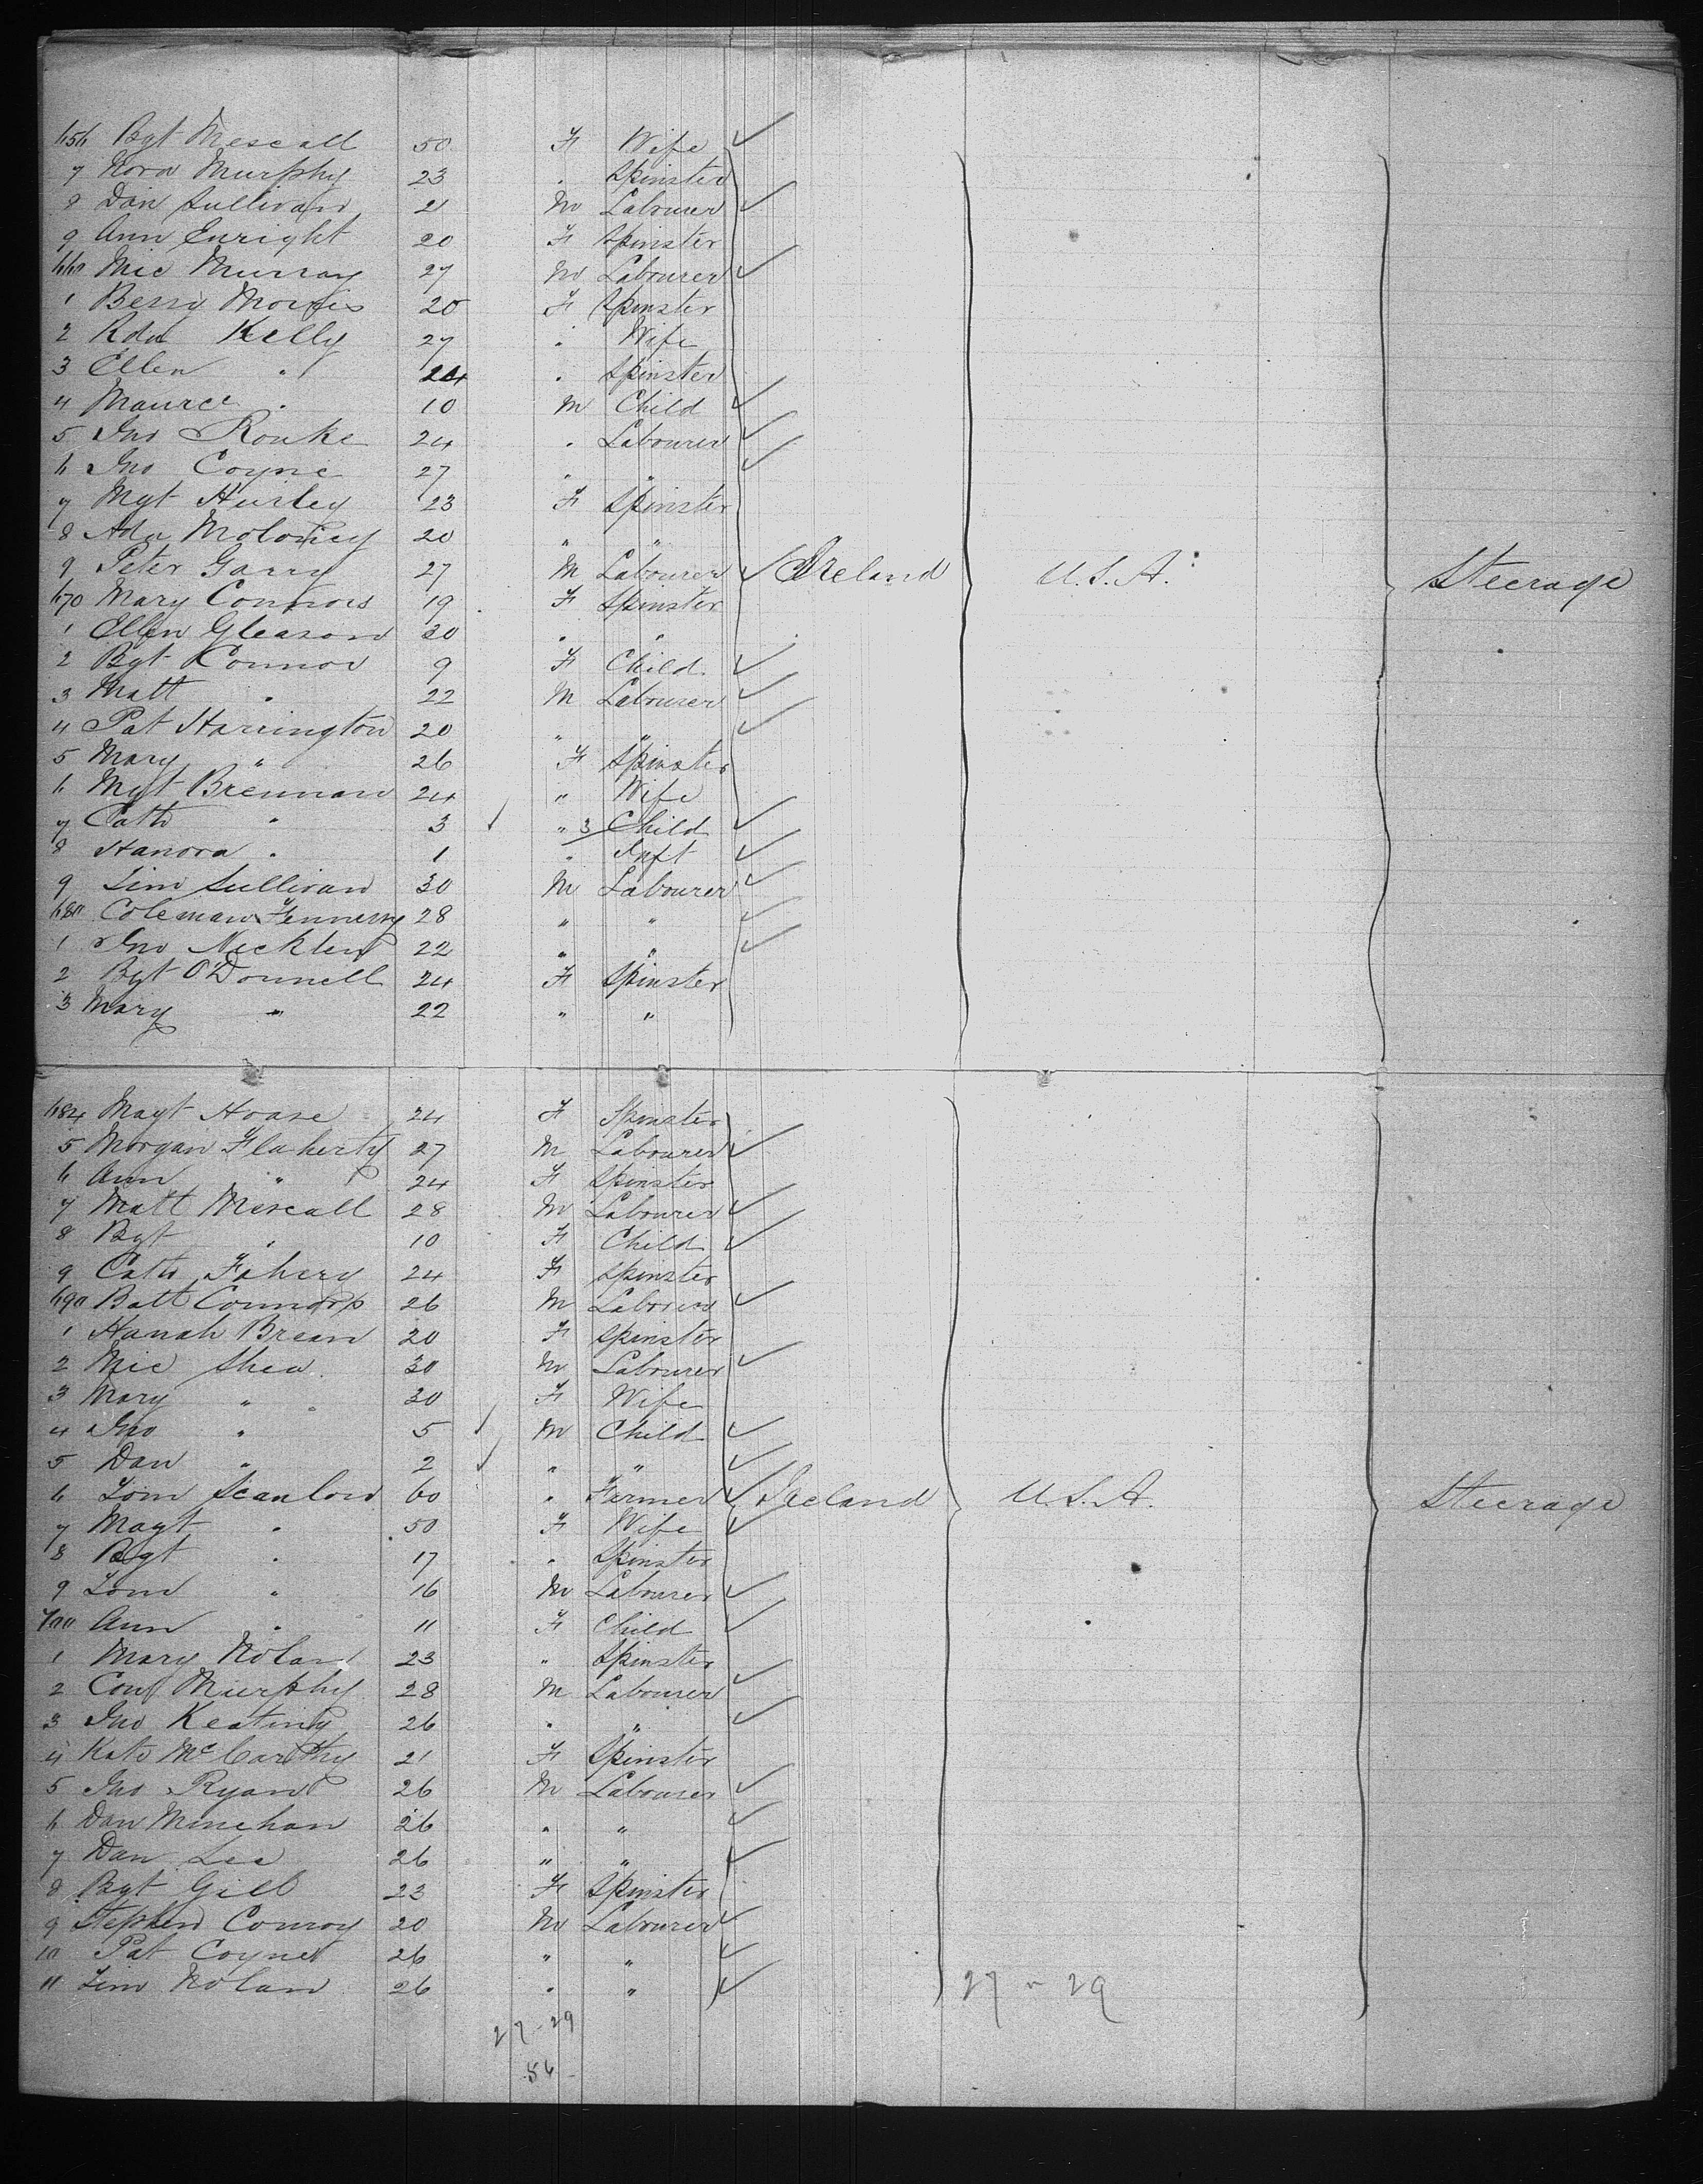 656 Bgt Mescall 50 F Wife ✓
7 Nora Murphy 23 . Spinster
8 Dan Sullivan 21 M Labourer ✓
9 Ann Enright 20 F Spinster
660 Mic Murray 27 M Labourer ✓
1 20 F Spinster
2 Kelly 27 . Wife
3 Ellen " 24 . Spinster
4 Maurce . 10 M Child ✓
5 Jno Rouke 24 . Labourer ✓
6 Jno Coyne 27 " " ✓
7 Mgt Hurley 23 F Spinster
8 Ada Moloney 20 " "
9 Peter Garry 27 M Labourer ✓ Ireland U.S.A. Steerage
670 Mary Connors 19 F Spinster
1 Ellen Gleason 20 " "
2 Bgt Connor 9 F Child ✓
3 Matt . 22 M Labourer ✓
4 Pat Harrington 20 " " ✓
5 Mary " 26 F Spinster
6 Mgt Brennan 24 " Wife
7 Cath " 3 ✓ " 3 Child ✓
8 Hanora . 1 . Inft ✓
9 Tim Sullivan 30 M Labourer ✓
680 Coleman 28 " " ✓
1 Jno 22 " " ✓
2 Bgt O'Donnell 24 F Spinster
3 Mary " 22 " "
684 Magt Hoare 24 F Spinster
5 Morgan Flaherty 27 M Labourer ✓
6 Ann " 24 F Spinster
7 Matt Mescall 28 M Labourer ✓
8 Bgt . 10 F Child ✓
9 Cath Fahery 24 F Spinster
690 Batt Connors 26 M Labourer ✓
1 Hanah Brean 20 F Spinster
2 Mic Shea 30 M Labourer ✓
3 Mary " 30 F Wife
4 Jno " 5 ✓ M Child ✓
5 Dan " 2 ✓ " " ✓
6 Tom Scanlon 60 . Farmer ✓ Ireland U.S.A. Steerage
7 Magt . 50 F Wife ✓
8 Bgt . 17 . Spinster
9 Tom " 16 M Labourer ✓
700 Ann . 11 F Child ✓
1 Mary Nolan 23 " Spinster
2 Con Murphy 28 M Labourer ✓
3 Jno Keating 26 . " ✓
4 Kate McCarthy 21 F Spinster
5 Jno Ryan 26 M Labourer ✓
6 Dan Minehan 26 " " ✓
7 Dan Lee 26 " " ✓
8 Bgt Gill 23 F Spinster
9 Stephen Conroy 20 M Labourer ✓
10 Pat Coyne 26 " " ✓
11 Tim Nolan 26 . " ✓
27 - 29
27 - 29
56